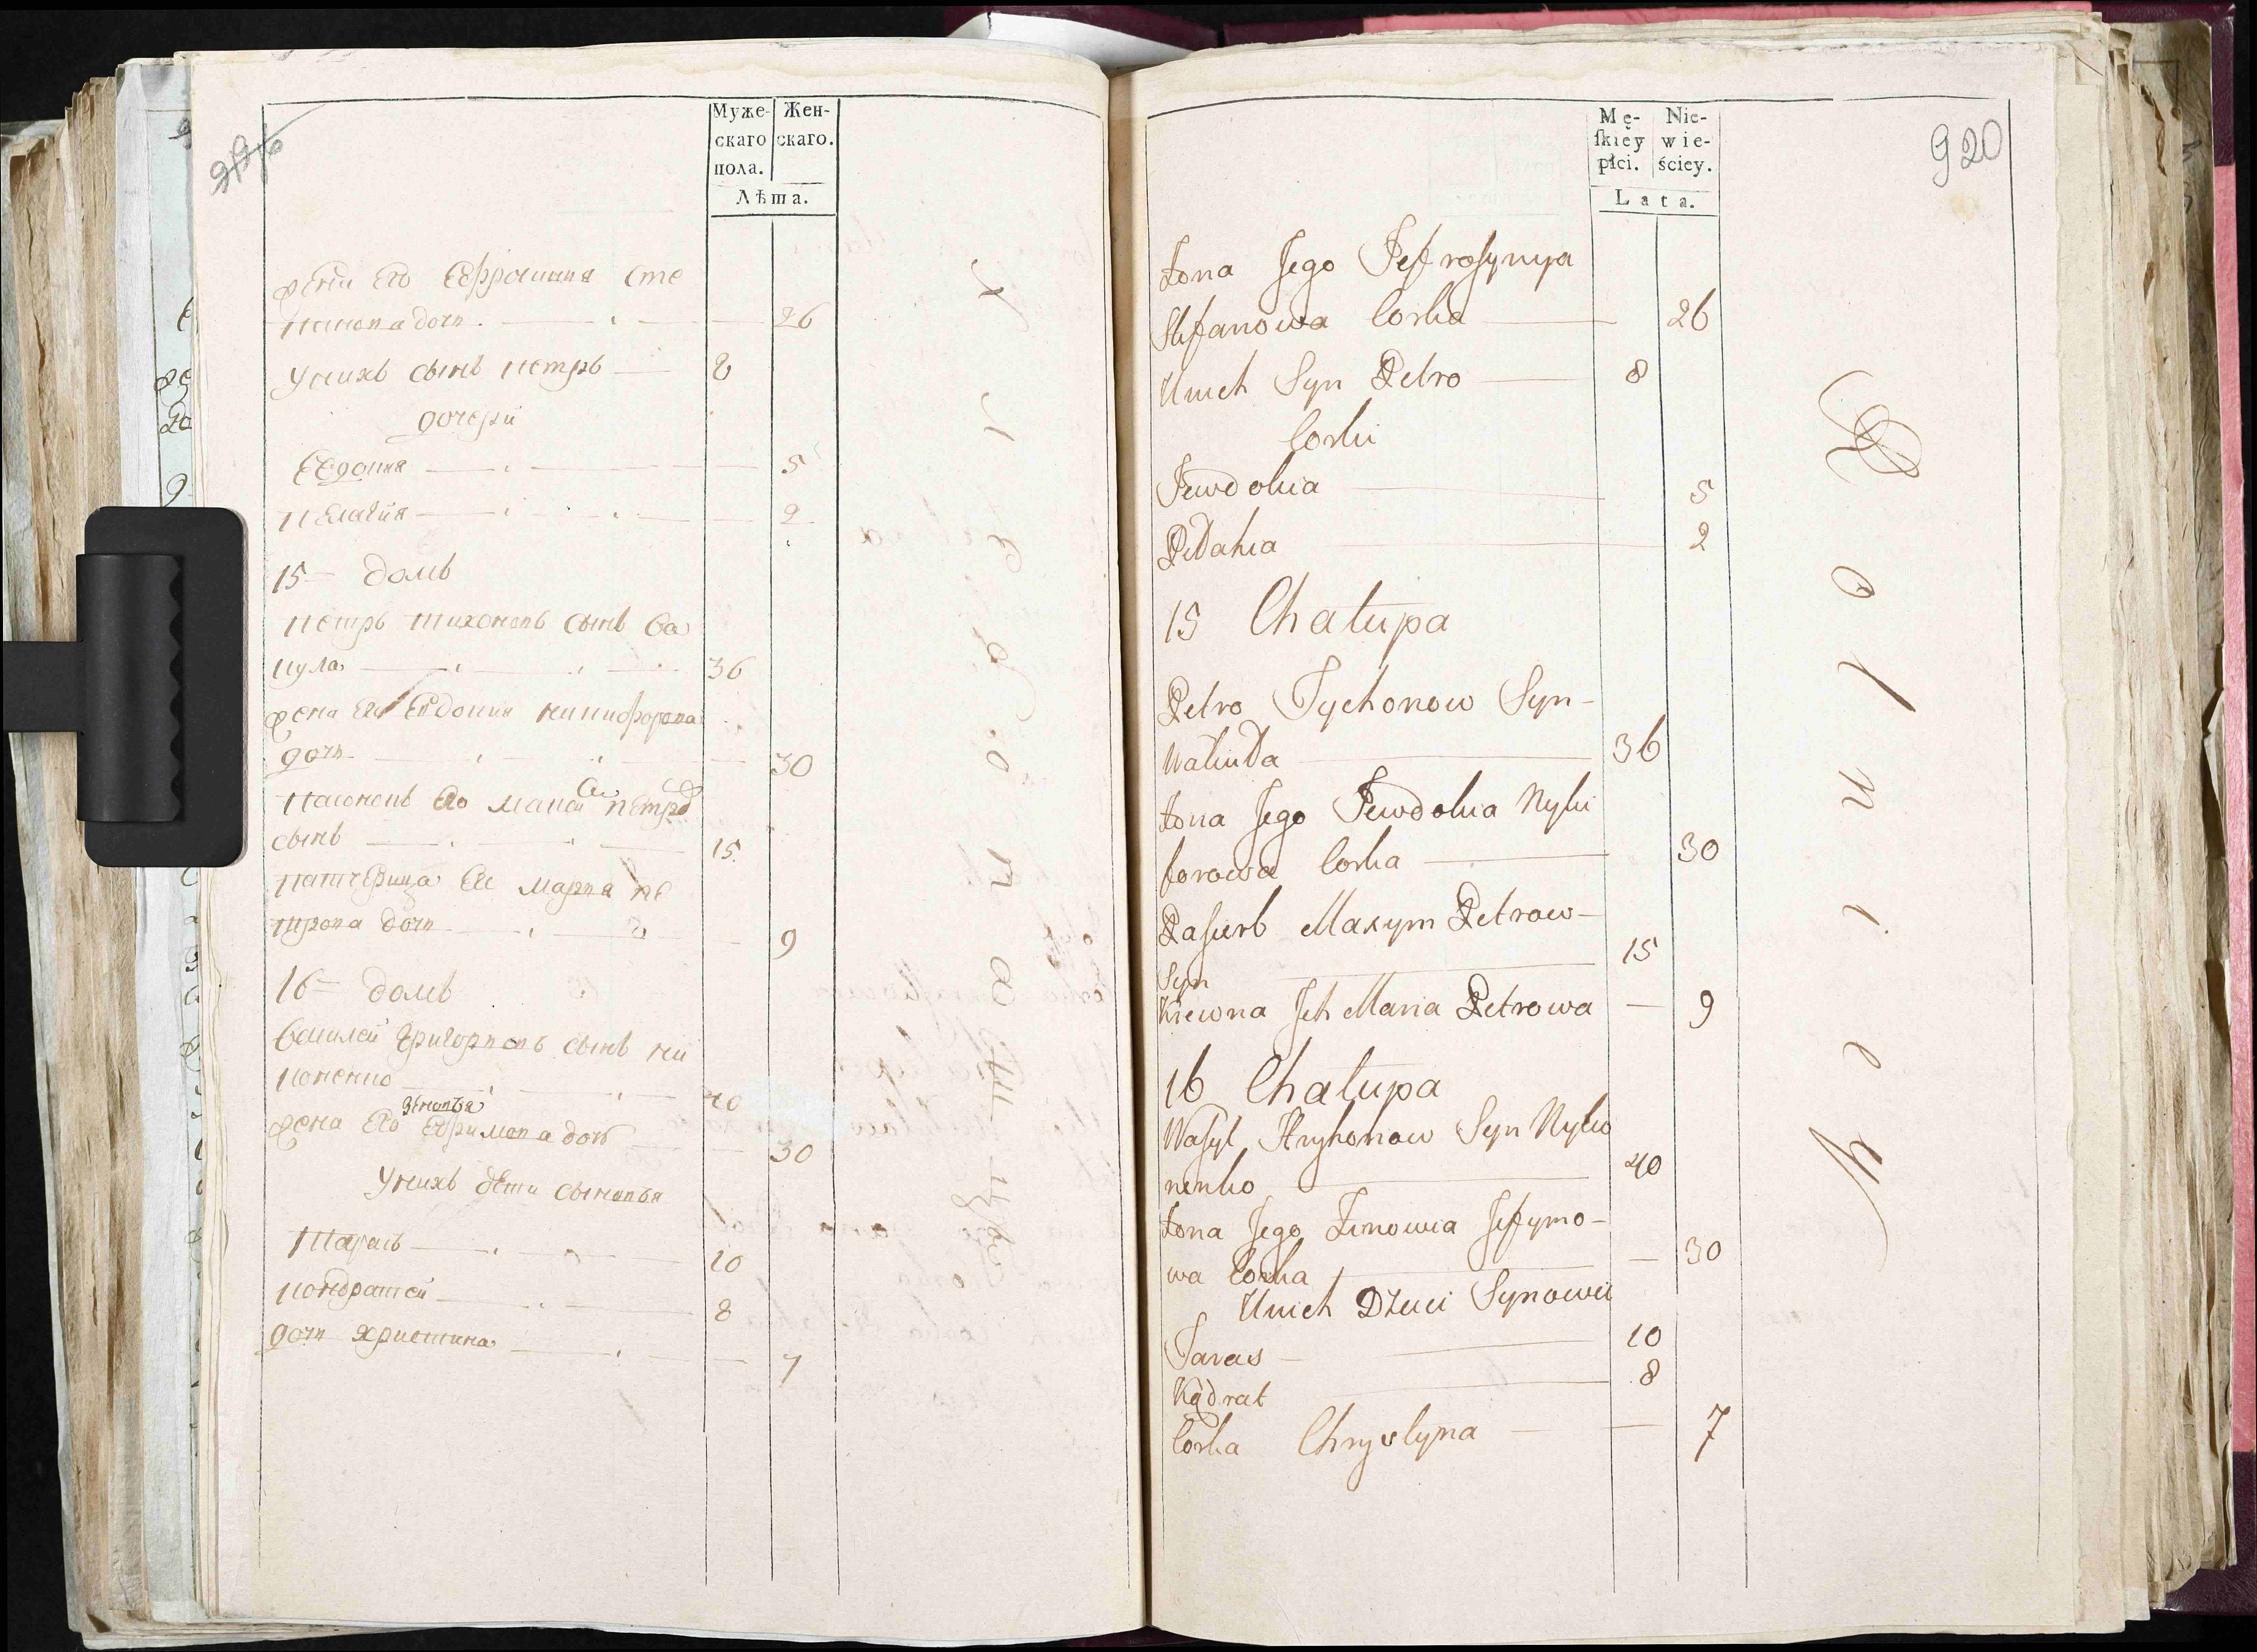 Муже-
скаго
пола.
Жен-
скаго.
Лѣта.
жена Его Ефросиния Сте
панова дочь 26
У нихъ сынъ петръ 8
дочери
Евдокия 5
пелагия 2
15 домъ
петръ тихоновъ сынъ ва
кула 36
жена Его Евдокия никифорова
дочь 30
пасонокъ Его петров
сынъ 15
патчерица Ее мария пе
трова дочь 9
16 домъ
василей Григорьевъ сынъ ни
коненко 40
зеновья
жена Его Ефимова дочь 30
У нихъ дети сыновья
тарасъ 10
кондратей 8
дочь христина 7
920
Mę-
ſkiey
płci.
Nie-
wie-
ściey.
Lata.
Żona Jego Jefrosynya
Stefanowa Corka 26
U nich Syn Petro 8
Corki
Jewdokia 5
Pełahia 2
15 Chałupa
Petro Tychonow Syn-
Wakuła 36
Żona Jego Jewdokia Nyki
forowa Corka 30
Pasierb Maxym Petrow-
Syn 15
Krewna Jch Maria Petrowa 9
16 Chałupa
Wasyl Hryhorow Syn Nyko
nenko 40
Żona Jego Zinowia Jefymo-
wa Corka 30
U nich Dzieci Synowie
Taras 10
Kądrat 8
Corka Chrystyna 7